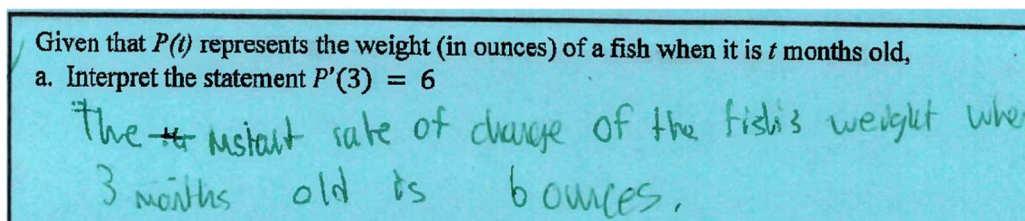 Given that P(t) represents the weight (in ounces) of a fish when it is t months old,
a. Interpret the statement P'(3) = 6
The instant rate of change of the fish's weight whe
3 months old is 6 ounces.